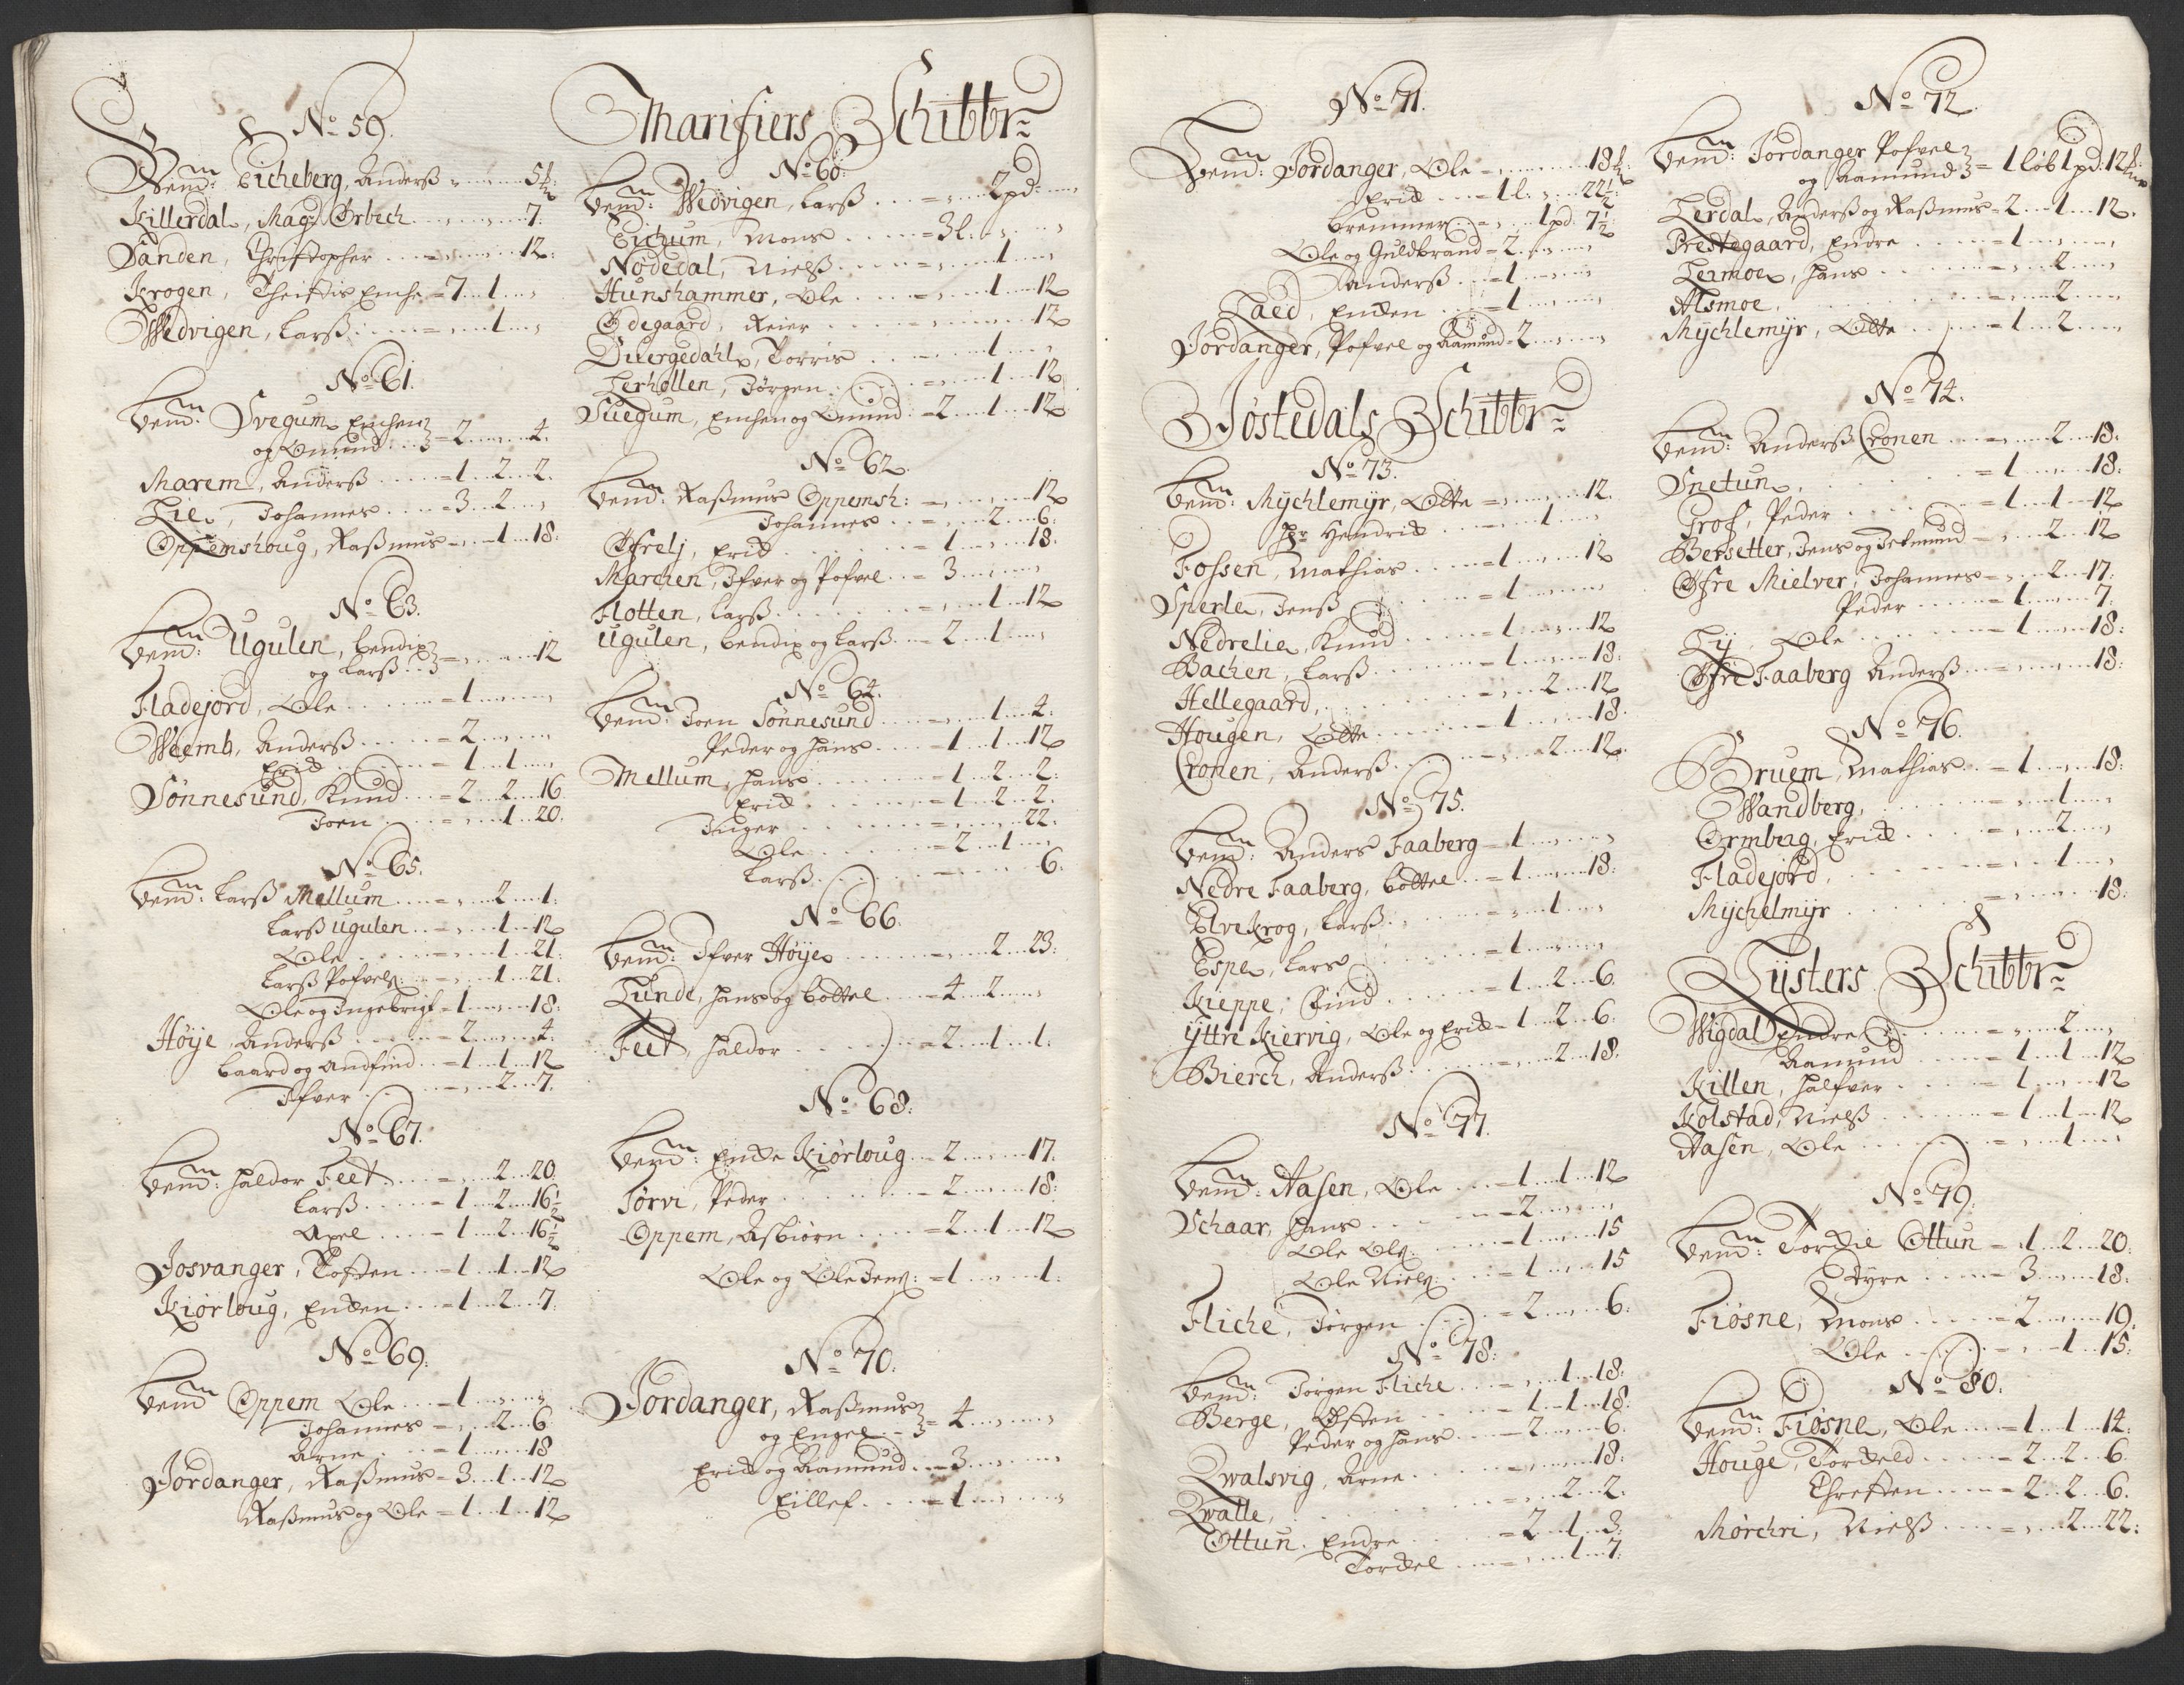 No 59.
Bemt: Eicheberg, Anderß = " " 5½
Killerdal, Mag: Ørbech " " 7.
Sanden, Christopher = " " 12:
Krogen, Theistis Enche = 7 1 "
Wedvigen, Larß = " 1 "
No 61.
Bemt: Svegum, Enchen
og Omund = 2 " 4.
Marem, Anderß = 1 2 2.
Lie, Johannes = 3 2 "
Oppemshoug, Raßmus = " 1 18.
No 63.
Bemt: Ugulen, bendix
og Larß = " " 12
Fladejord, Ole = 1 " "
Weemb, Anderß = 2 " "
Erich = 1 1 "
Sønnesund, Knud = 2 2 16
Joen = " 1 20.
No 65.
Bemt: Larß Mellum = " 2 1.
Larß Ugulen = " 1 12
Ole = " 1 21.
Larß Pofvelß: = " 1 21.
Ole og Ingebrigt = 1 " 18.
Høije, Anderß = 2 " 4.
baard og Andfind = 1 1 12
Ifver = " 2 7.
No 67.
Bemt: Haldor Feet = " 2 20.
Larß = 1 2 16½
Axel = 1 2 16½
Josvanger, Tosten = 1 1 12
Kiørloug, Encken = 1 2 7.
No 69.
Bemt Oppem Ole = 1 " "
Johannes = " 2 6
Arne = 1 " 18
Jordanger, Raßmus = 3 1 12
Raßmus og Ole = 1 1 12
Marifiers Schibbr:
No 60.
Bemt: Wedvigen, Larß = " 2 pd: "
Eichum, Mons = 3 l. " "
Nødedal, Nielß = " 1 "
Hunshammer, Ole = " 1 12
Ødegaard, Reier = " " 12
Quergedahl, Torris = " 1 "
Lerhollen, Jørgen = " 1 12
Suegum, Enchen og Omund = 2 1 12
No 62.
Bemt: Raßmus Oppemsh: = " " 12
Johannes = " 2 6.
Øfrelj, Erich = 1 " 18.
Marchen, Ifver og Pofvel = 3 " "
Flotten, Larß = " 1 12
Ugulen, bendix og Larß = 2 1 "
No 64.
Bemt: Joen Sønnesund = " 1 4.
Peder og Hans = 1 1 12
Mellum, Hans = 1 2 2.
Erich = 1 2 2.
Inger = " " 22.
Ole = 2 1 "
Larß = " " 6.
No 66.
Bemt: Ifver Høije = " 2 23.
Lunde, Hans og bottel = 4 2 "
Feet, Haldor = 2 1 1.
No 68.
Bemt: Encke Kiørloug = 2 " 17.
Tørvi, Peder = 2 " 18.
Oppem, Asbiørn = 2 1 12
Ole og Ole Jenß: = 1 " 1.
No 70.
Jordanger, Raßmus
og Engel = 4 " "
Erich og Aamund = 3 " "
Eillef = 1 " "
No 71.
Bemt: Jordanger, Ole = " " 18½
Erich = 1 l. " 22½
bremmer = " 1 pd. 7½
Ole og Guldbrand = 2 " "
Anderß = 1 " "
Laed, Encken = 1 " "
Jordanger, Pofvel og Aamund = 2 " "
Jostedals Schibbr:
No 73.
Bemt: Mychlemyr, Otte = " " 12.
Hr Hendrich = " 1 "
Fossen, Mathias = 1 " 12
Sperle, Jenß = 1 " "
Nedrelie, Knud = 1 " 12
Bachen, Larß = 1 " 18.
Hellegaard, = " 2 12
Hougen, Otte = 1 " 18.
Cronen, Anderß = " 2 12.
No 75.
Bemt: Anders Faaberg = 1 " "
Nedre Faaberg, bottel = 1 " 18.
Elvekrog, Larß = " 1 "
Espe, Lars = 1 " "
Kieppe, Find = 1 2 6
Ÿttre Kiervig, Ole og Erich = 1 2 6.
Bierch, Anderß = " 2 18.
No 77.
Bemt: Aasen, Ole = 1 1 12
Schaar, Hans = 2 " "
Ole Olß: = 1 " 15
Ole Nielß: = 1 " 15
Fliche, Jørgen = 2 " 6.
No 78.
Bemt: Jørgen Fliche = " 1 18.
Berge, Østen = 1 1 18.
Peder og Hans = 2 " 6.
Qwalsvig, Arne = " " 18.
Qwalle, = " 2 2.
Ottun. Endre = 2 1 3.
Torckel = " 1 7.
No 72.
Bemt: Jordanger Pofvel
og Aamund = 1 løb 1 pd: 12½
Lerdal, Anderß og Raßmus = 2 1 12.
Prestegaard, Endre = 1 " "
Lermoe, Hans = " 2 "
Alsmoe, = " 2 "
Mychlemÿr, Otte = 1 2 "
No 74.
Bemt: Anderß Cronen = " 2 18.
Snetun, = 1 " 18.
Grof, Peder = 1 1 12
Bersetter, Jens og Jetmund = " 2 12
Øfre Mielver, Johannes = " 2 17.
Peder = 1 " 7.
Lÿ, Ole = 1 " 18.
Øfre Faaberg Anderß = " " 18.
No 76.
Bruem, Mathias = 1 " 18.
Wandberg, = " 1 "
Ormberg, Erich = " 2 "
Fladejord, = " 1 "
Mÿchelmÿr = " " 18.
Lÿsters Schibbr:
Wigdal Endre = " 2 "
Aamund = 1 1 12
Killen, Halfver = 1 " 12
Kolstad, Nielß = 1 1 12
Aasen, Ole = " 1 "
No 79.
Bemt: Torckil Ottun = 1 2 20.
Styre = 3 " 18.
Fiøsne, Mons = 2 " 19.
Ole = " 1 15.
No 80.
Bemt: Fiøsne, Ole = 1 1 14.
Houge, Torckeld = 2 2 6.
Chresten = 2 2 6.
Mørchri, Nielß = " 2 22.